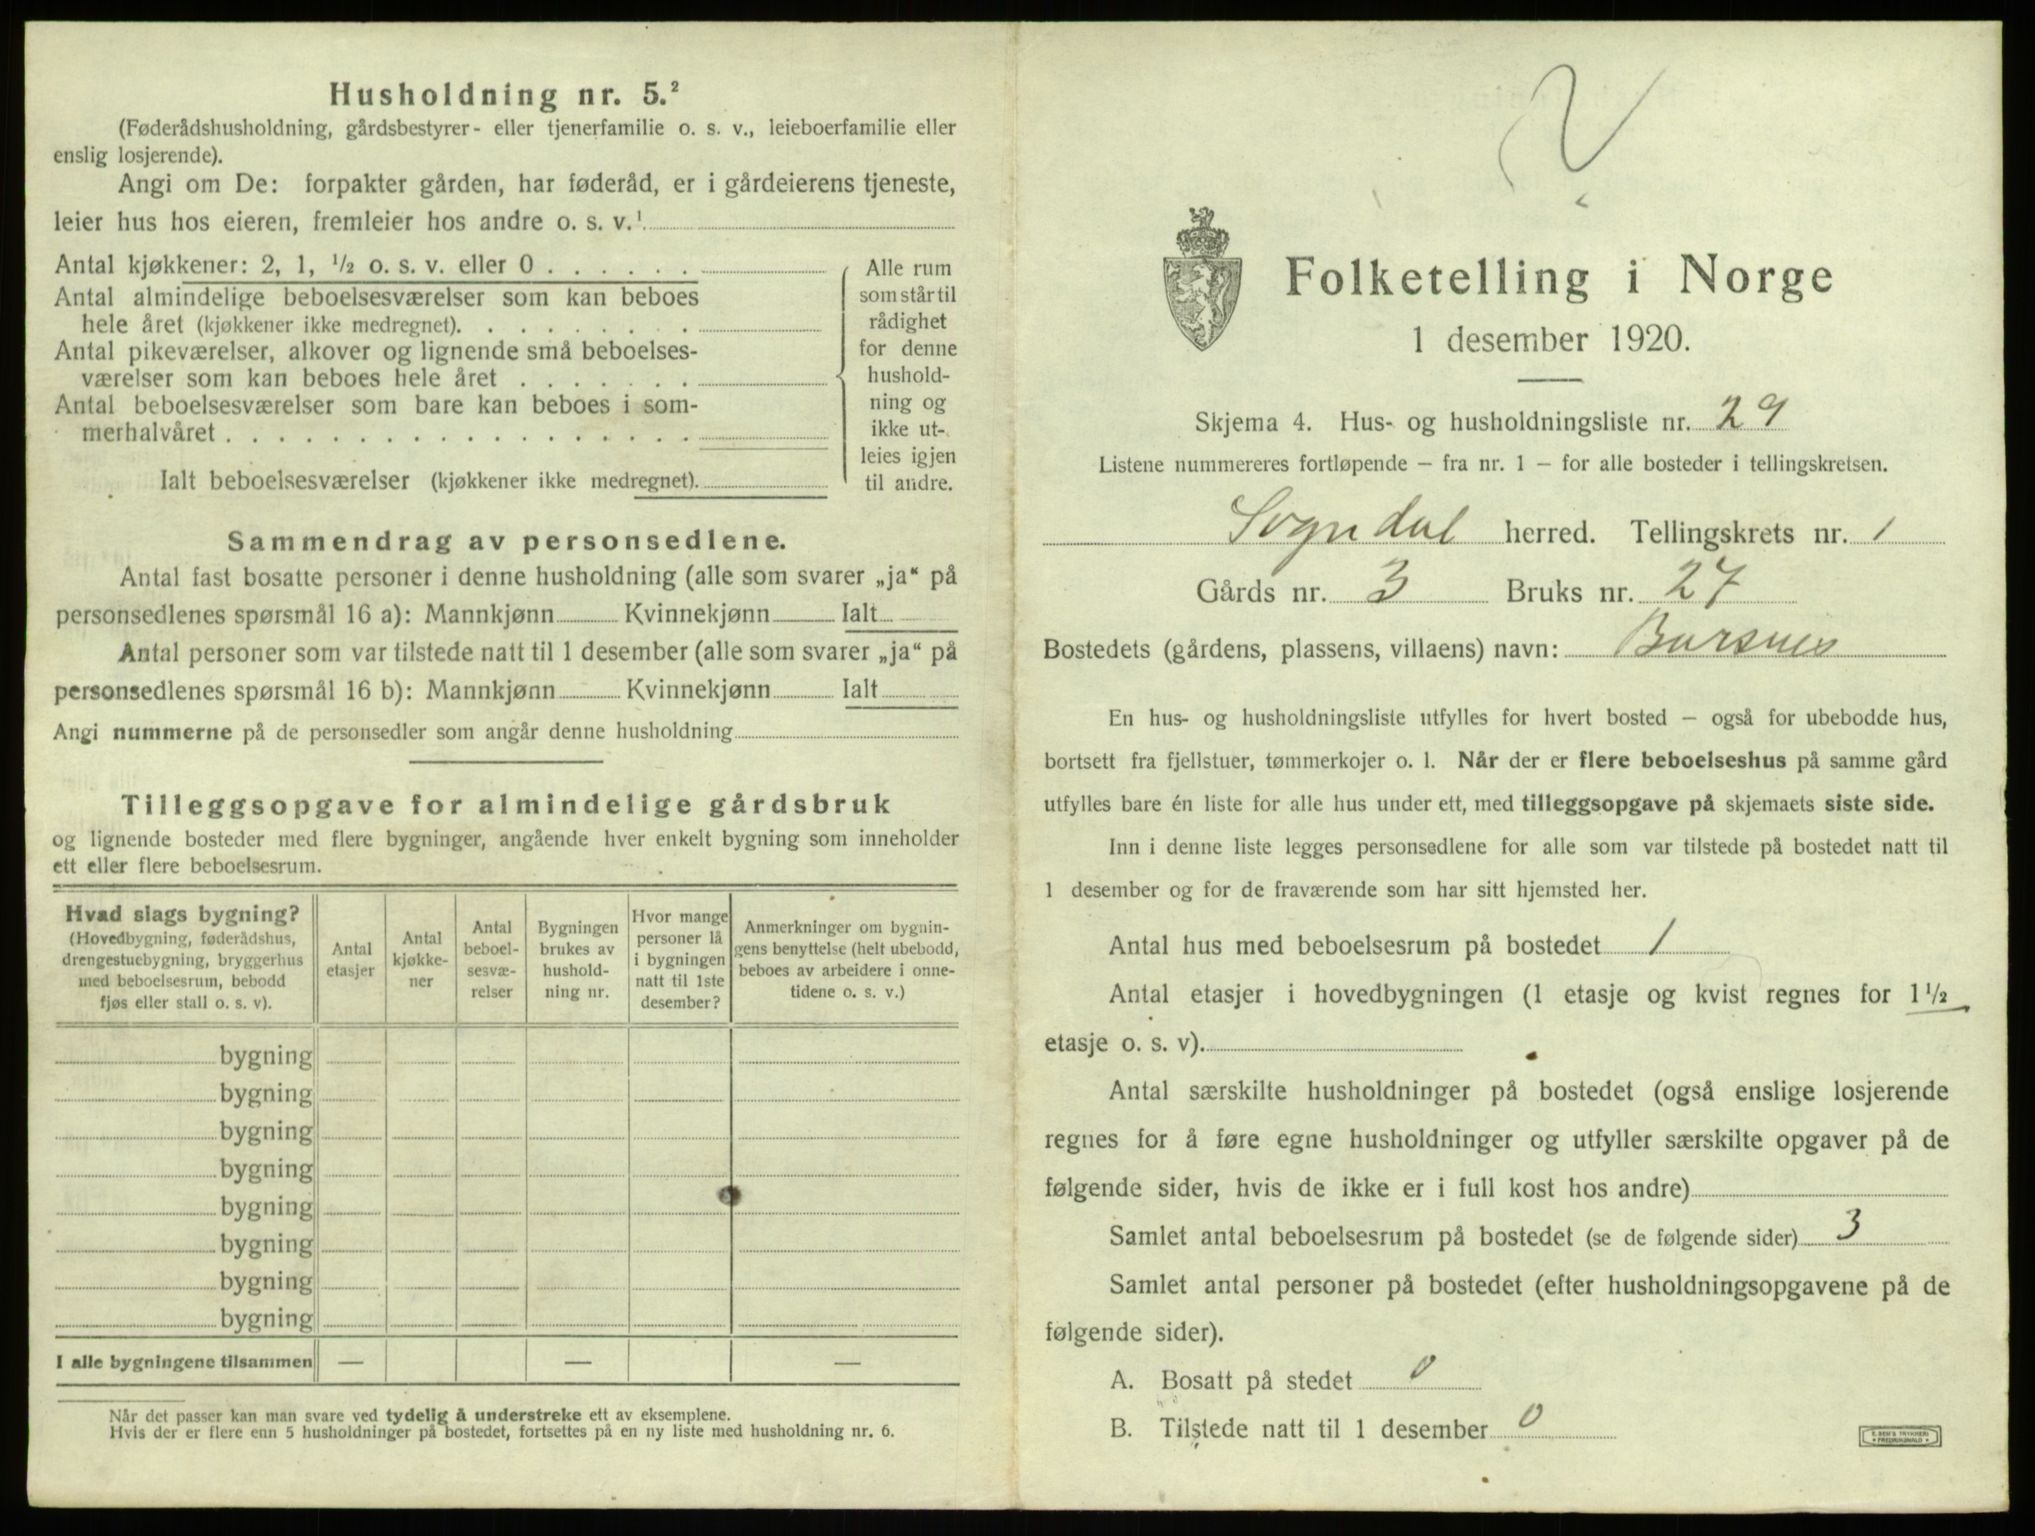 Husholdning nr. 5.²
(Føderådshusholdning, gårdsbestyrer- eller tjenerfamilie o. s. v., leieboerfamilie eller
enslig losjerende).
Angi om De: forpakter gården, har føderåd, er i gårdeierens tjeneste,
leier hus hos eieren, fremleier hos andre o. s. v.¹
Antal kjøkkener: 2, 1, ½ o. s. v. eller 0
Antal almindelige beboelsesværelser som kan beboes
hele året (kjøkkener ikke medregnet).
Antal pikeværelser, alkover og lignende små beboelses-
værelser som kan beboes hele året
Antal beboelsesværelser som bare kan beboes i som-
merhalvåret
Ialt beboelsesværelser (kjøkkener ikke medregnet).
Alle rum
som står til
rådighet
for denne
hushold-
ning og
ikke ut-
leies igjen
til andre.
Sammendrag av personsedlene.
Antal fast bosatte personer i denne husholdning (alle som svarer „ja“ på
personsedlenes spørsmål 16 a): Mannkjønn Kvinnekjønn Ialt
Antal personer som var tilstede natt til 1 desember (alle som svarer „ja“ på
personsedlenes spørsmål 16 b): Mannkjønn Kvinnekjønn Ialt
Angi nummerne på de personsedler som angår denne husholdning
Tilleggsopgave for almindelige gårdsbruk
og lignende bosteder med flere bygninger, angående hver enkelt bygning som inneholder
ett eller flere beboelsesrum.
Hvad slags bygning?
(Hovedbygning, føderådshus,
drengestuebygning, bryggerhus
med beboelsesrum, bebodd
fjøs eller stall o. s. v).
Antal
etasjer
Antal
kjøkke-
ner
Antal
beboel-
sesvæ-
relser
Bygningen
brukes av
hushold-
ning nr.
Hvor mange
personer lå
i bygningen
natt til 1ste
desember?
Anmerkninger om bygnin-
gens benyttelse (helt ubebodd,
beboes av arbeidere i onne-
tidene o. s. v.)
bygning
bygning
bygning
bygning
bygning
bygning
bygning
bygning
I alle bygningene tilsammen — — —
Når det passer kan man svare ved tydelig å understreke ett av eksemplene.
Hvis der er flere enn 5 husholdninger på bostedet, fortsettes på en ny liste med husholdning nr. 6.
Folketelling i Norge
1 desember 1920.
Skjema 4. Hus- og husholdningsliste nr. 29
Listene nummereres fortløpende – fra nr. 1 – for alle bosteder i tellingskretsen.
Sogndal herred. Tellingskrets nr. 1
Gårds nr. 3 Bruks nr. 27
Bostedets (gårdens, plassens, villaens) navn: Barsnes
En hus- og husholdningsliste utfylles for hvert bosted – også for ubebodde hus,
bortsett fra fjellstuer, tømmerkojer o. l. Når der er flere beboelseshus på samme gård
utfylles bare én liste for alle hus under ett, med tilleggsopgave på skjemaets siste side.
Inn i denne liste legges personsedlene for alle som var tilstede på bostedet natt til
1 desember og for de fraværende som har sitt hjemsted her.
Antal hus med beboelsesrum på bostedet 1
Antal etasjer i hovedbygningen (1 etasje og kvist regnes for 1½
etasje o. s. v).
Antal særskilte husholdninger på bostedet (også enslige losjerende
regnes for å føre egne husholdninger og utfyller særskilte opgaver på de
følgende sider, hvis de ikke er i full kost hos andre)
Samlet antal beboelsesrum på bostedet (se de følgende sider) 3
Samlet antal personer på bostedet (efter husholdningsopgavene på de
følgende sider).
A. Bosatt på stedet 0
B. Tilstede natt til 1 desember 0